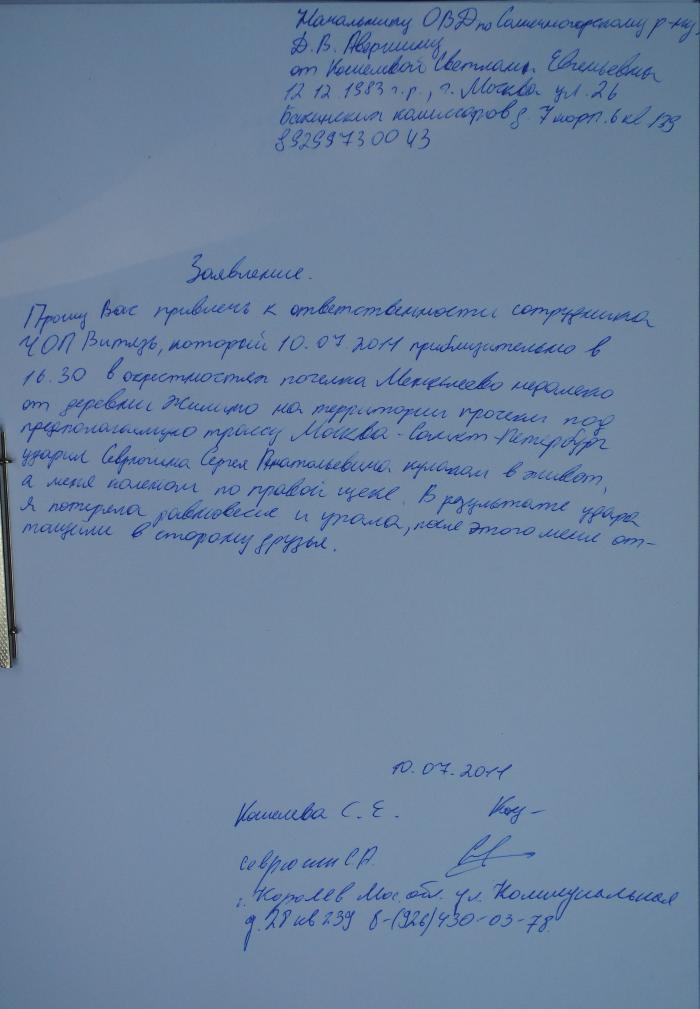 Начальнику ОВД по Солнечногорскому р-ну
Д.В. Аверкину
от Кошелевой Светланы Евгеньевны
12.12.1983 г.р., г. Москва ул. 26
Бакинских комиссаров д. 7 корп. 6 кв 139
89299730043
Заявление.
Прошу Вас привлечь к ответственности сотрудника
ЧОП Витязь, который 10.07.2011 приблизительно в
16.30 в окрестностях поселка Менделеево недалеко
от деревни Жилино на территории просеки под
предполагаемую трассу Москва-Санкт-Петербург
ударил Севрюгина Сергея Анатольевича кулаком в живот,
а меня коленом по правой щеке. В результате удара
я потеряла равновесие и упала, после этого меня от-
тащили в сторону друзья.
10.07.2011
Кошелева С. Е.
Севрюгин С А.
г. Королёв Мос. обл. ул. Коммунальная
д. 28 кв 239 8-(926)430-03-78